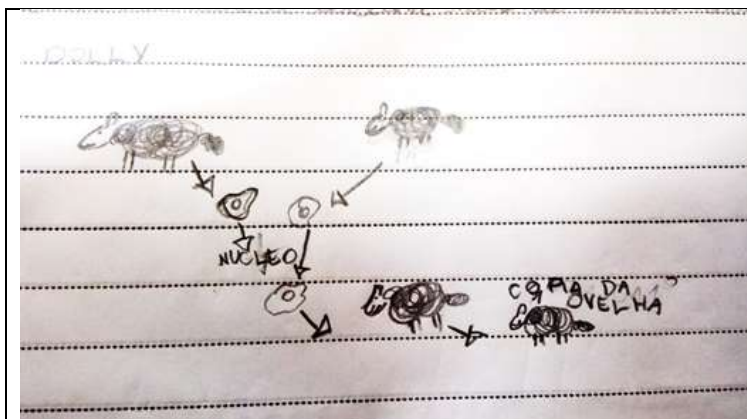 DOLLY
NUCLEO
COPIA DA
OVELHA